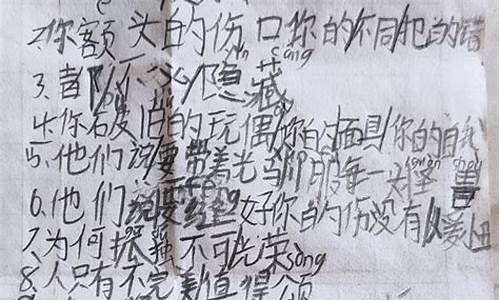 2.你额头的伤口你的不同犯的错
3.都不必隐藏 cang
4.你破旧的玩偶你的面具你的自我
5.他们说要带着光驯服每一头怪兽
6.他们说要缝好你的伤没有人爱小丑
7.为何孤独不可光荣
8.人只有不完美值得颂 song